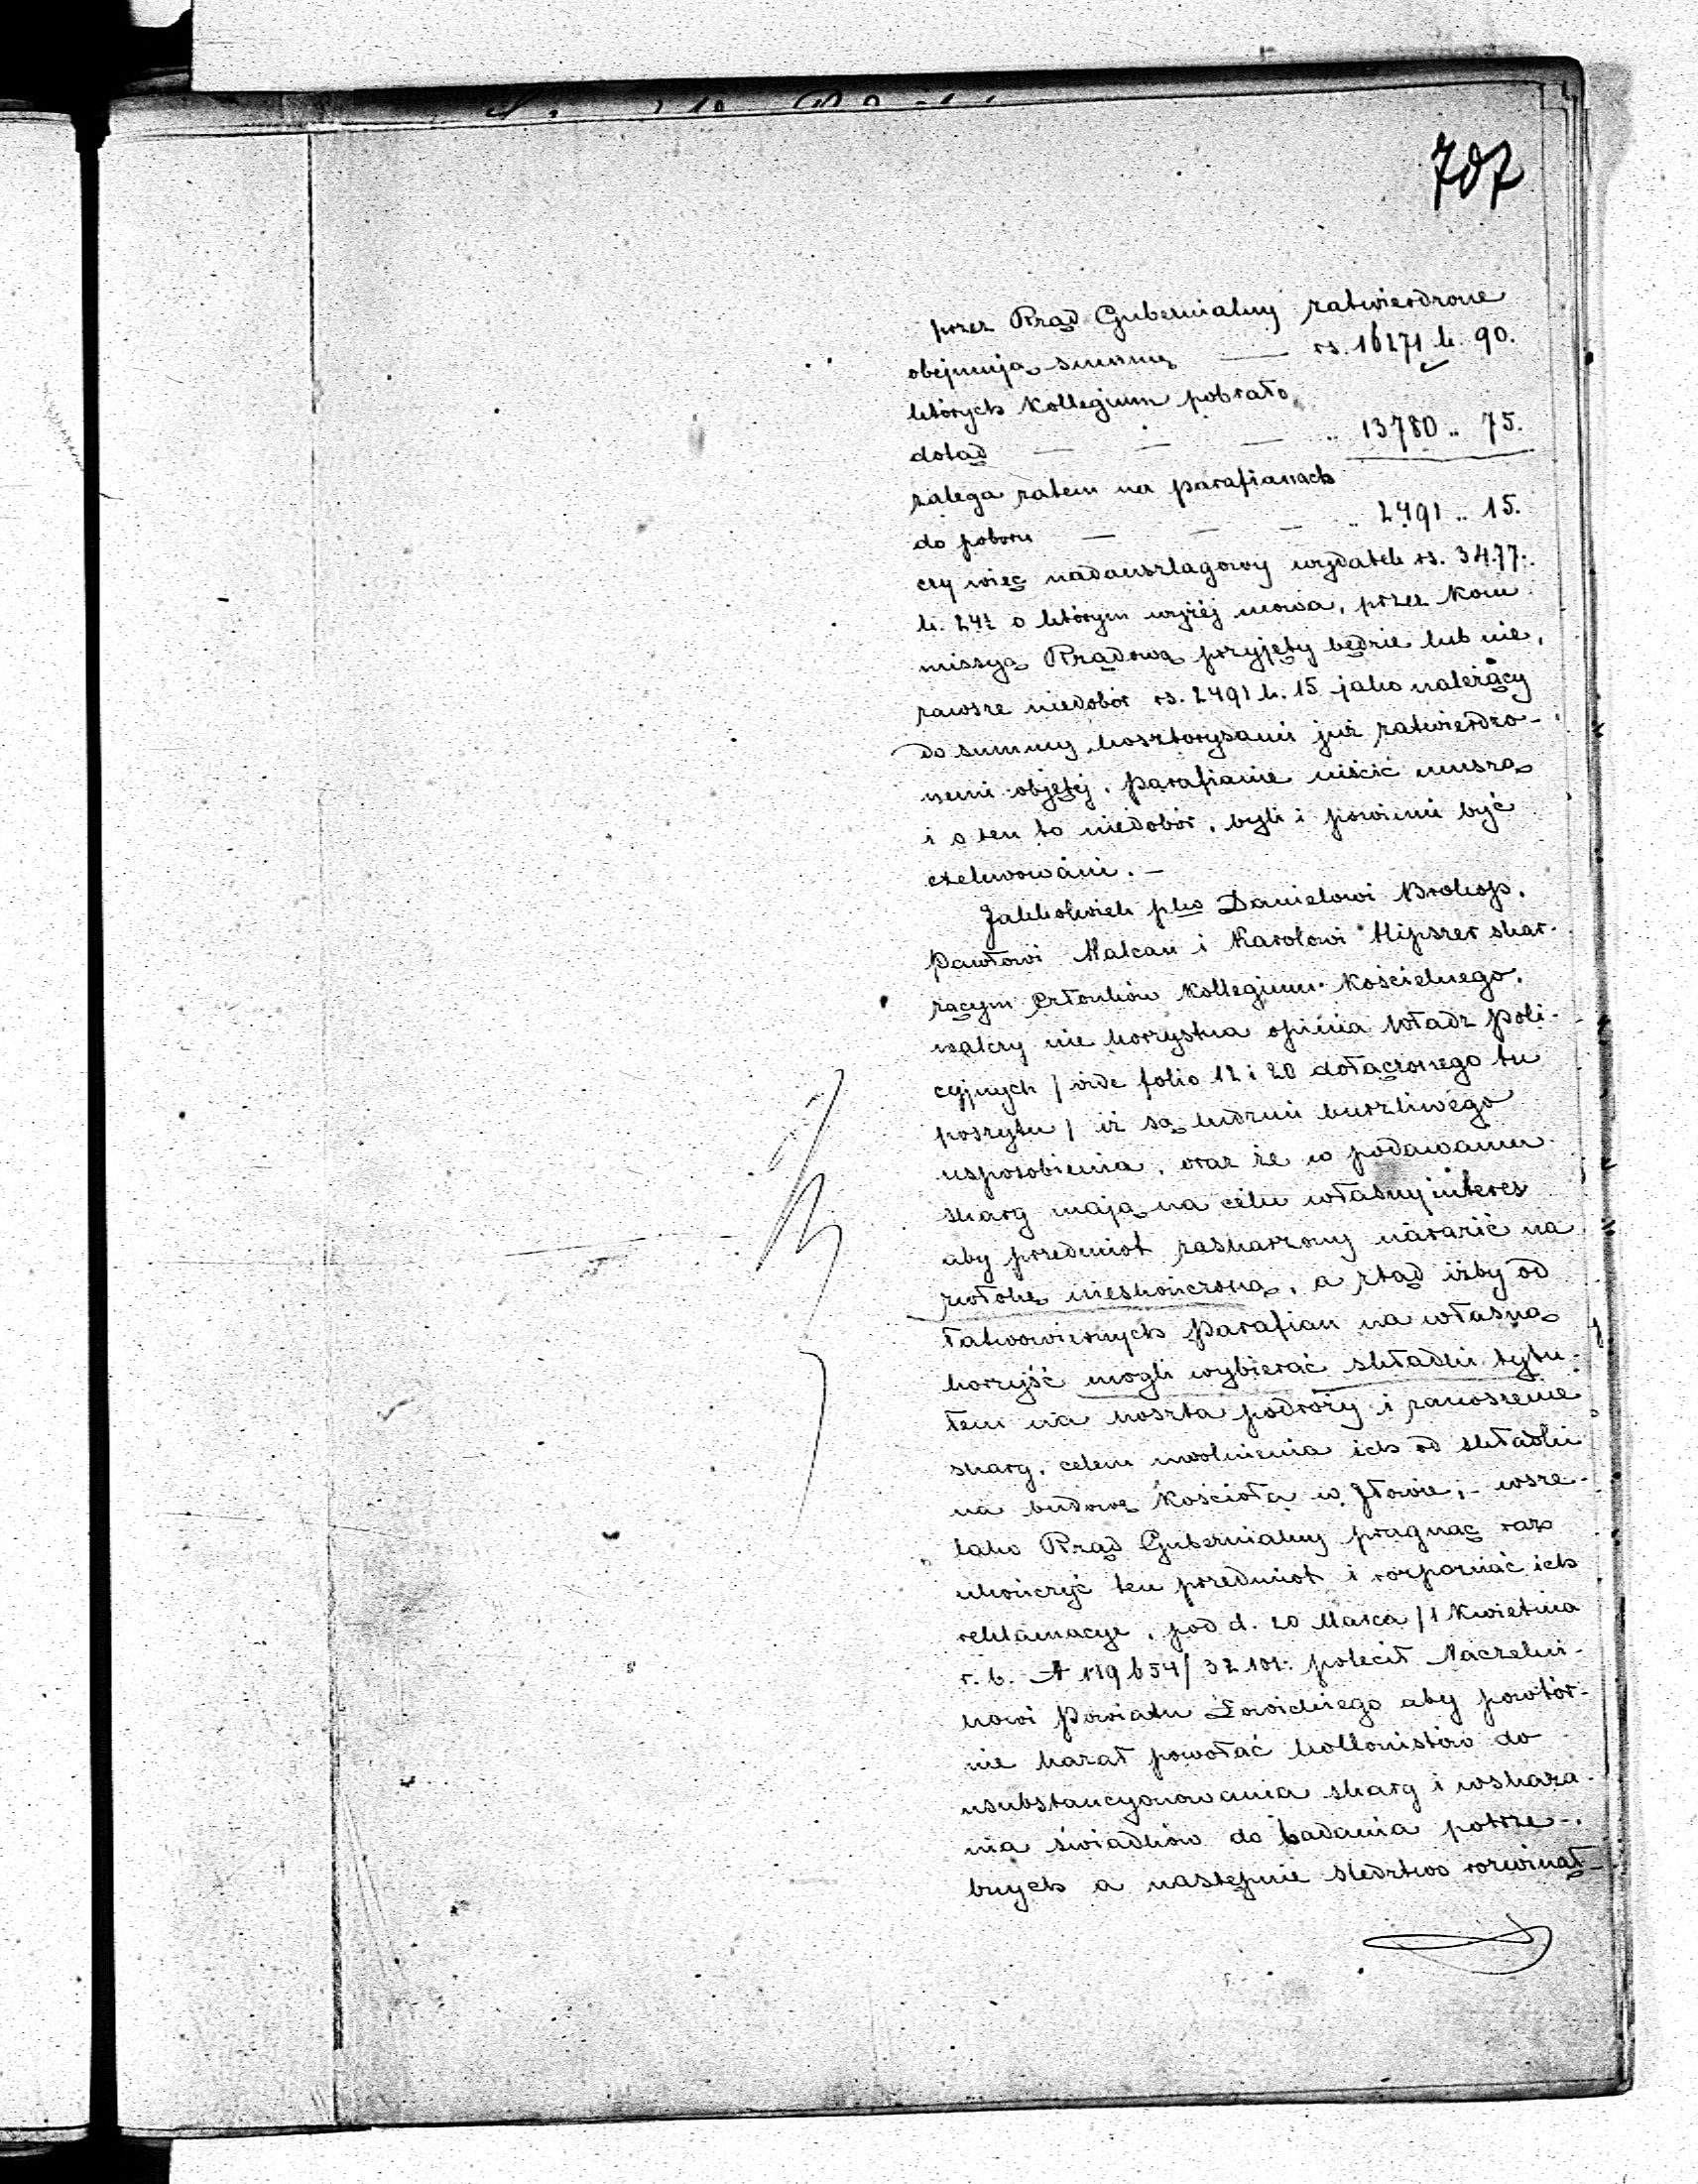 707
przez Rząd Gubernialny zatwierdzone
obejmują summę — rs. 16271 k. 90.
których Kollegium pobrało
dotąd — — — „ 13780 „ 75.
zalega zatem na parafianach
do poboru — — — „ 2491 „ 15.
czy więc nadanszlagowy wydatek rs. 3477.
k. 24½ o którym wyżéj mowa, przez Kom-
missyą Rządową przyjęty będzie lub nie,
zawsze niedobór rs. 2491 k. 15 jako należący
do summy kosztorysami już zatwierdzo-
nemi objętéj, parafianie uiścić muszą
i o ten to niedobór, byli i powinni być
exekwowani. —
Jakkolwiek pko Danielowi Brokop,
Pawłowi Malcan i Karolowi Hipszer skar-
żącym Członków Kollegium Kościelnego,
walczy nie korzystna opinia Władz Poli-
cyjnych / vide folio 12 i 20 dołączonego tu
poszytu / iż są ludzmi burzliwego
usposobienia, oraz że w podawaniu
skarg mają na celu własny interes
aby przedmiot zaskarżony narazić na
zwłokę nieskończoną, a ztąd iżby od
łatwowiernych Parafian na własną
korzyść mogli wybierać składki tytu-
łem na koszta podróży i zanoszenie
skarg, celem uwolnienia ich od składki
na budowę Kościoła w Iłowie; — wsze-
lako Rząd Gubernialny pragnąc raz
ukończyć ten przedmiot i rozpoznać ich
reklamacye, pod d. 20 Marca / 1 Kwietnia
r. b. 119654/32101: polecił Naczelni-
kowi Powiatu Łowickiego aby powtór-
nie kazał powołać kollonistów do
usubstancyonowania skarg i wskaza-
nia świadków do badania potrze-
bnych a następnie śledztwo rozwinął